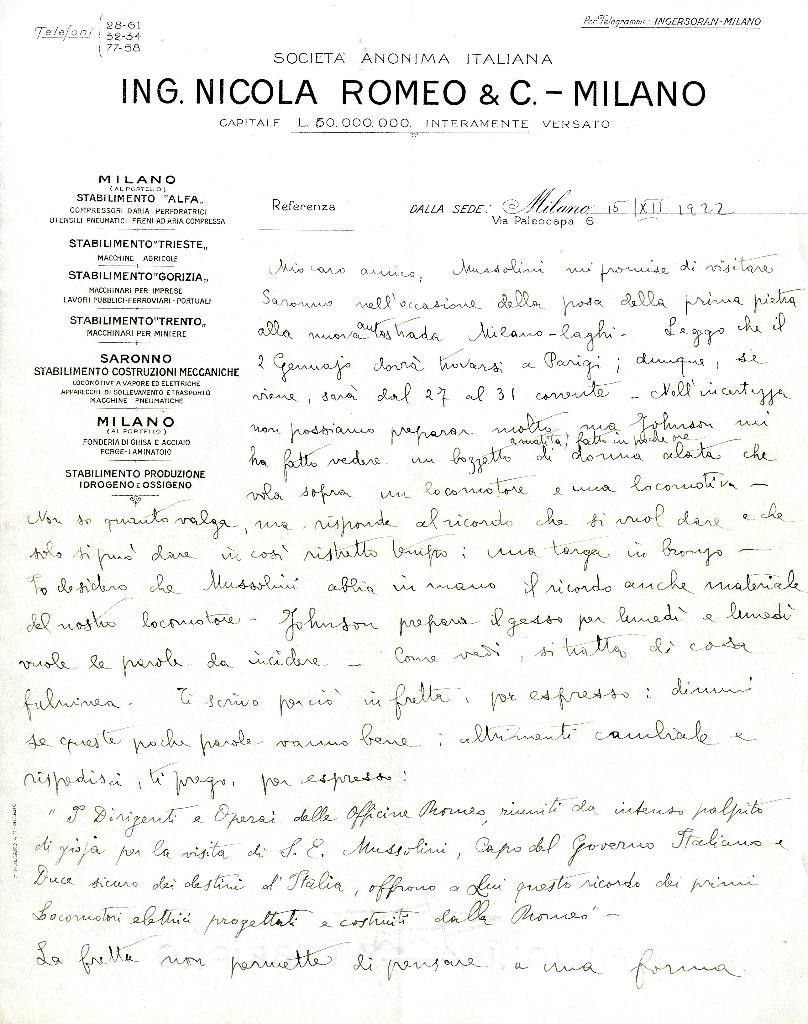 Telefoni 28-61
52-54
77-58
Per Telegrammi: INGERSORAN-MILANO
SOCIETÀ ANONIMA ITALIANA
ING. NICOLA ROMEO & C. – MILANO
CAPITALE L. 50.000.000. INTERAMENTE VERSATO
MILANO
(AL PORTELLO)
STABILIMENTO "ALFA„
COMPRESSORI D'ARIA PERFORATRICI
UTENSILI PNEUMATICI FRENI AD ARIA COMPRESSA
STABILIMENTO "TRIESTE„
MACCHINE AGRICOLE
STABILIMENTO "GORIZIA„
MACCHINARI PER IMPRESE
LAVORI PUBBLICI-FERROVIARI-PORTUALI
STABILIMENTO "TRENTO„
MACCHINARI PER MINIERE
SARONNO
STABILIMENTO COSTRUZIONI MECCANICHE
LOCOMOTIVE A VAPORE ED ELETTRICHE
APPARECCHI DI SOLLEVAMENTO E TRASPORTO
MACCHINE PNEUMATICHE
MILANO
(AL PORTELLO)
FONDERIA DI GHISA E ACCIAIO
FORGE-LAMINATOIO
STABILIMENTO PRODUZIONE
IDROGENO E OSSIGENO
Referenza
DALLA SEDE: Milano 15 XII 1922
Via Paleocapa 6
Mio caro amico, Mussolini mi promise di visitare
Saronno nell'occasione della posa della prima pietra
alla nuova autostrada Milano-laghi. Leggo che il
2 Gennajo dovrà trovarsi a Parigi; dunque, se
viene, sarà dal 27 al 31 corrente – Nell'incertezza
non possiamo preparar molto, ma Johnson mi
ha fatto vedere un bozzetto fatto in poche ore di donna alata che
vola sopra un locomotore e una locomotiva –
Non so quanto valga, ma risponde al ricordo che si vuol dare e che
solo si può dare in così ristretto tempo: una targa in bronzo –
Io desidero che Mussolini abbia in mano il ricordo anche materiale
del nostro locomotore – Johnson prepara il gesso per lunedì e lunedì
vuole le parole da incidere – Come vedi, si tratta di cosa
fulminea. Ti scrivo perciò in fretta, per espresso: dimmi
se queste poche parole vanno bene; altrimenti cambiale e
rispedisci, ti prego, per espresso:
"I Dirigenti e Operai delle Officine Romeo, riuniti da intenso palpito
di gioja per la visita di S. E. Mussolini, Capo del Governo Italiano e
Duce sicuro dei destini d'Italia, offrono a Lui questo ricordo dei primi
Locomotori elettrici progettati e costruiti dalla Romeo" –
La fretta non permette di pensare a una forma